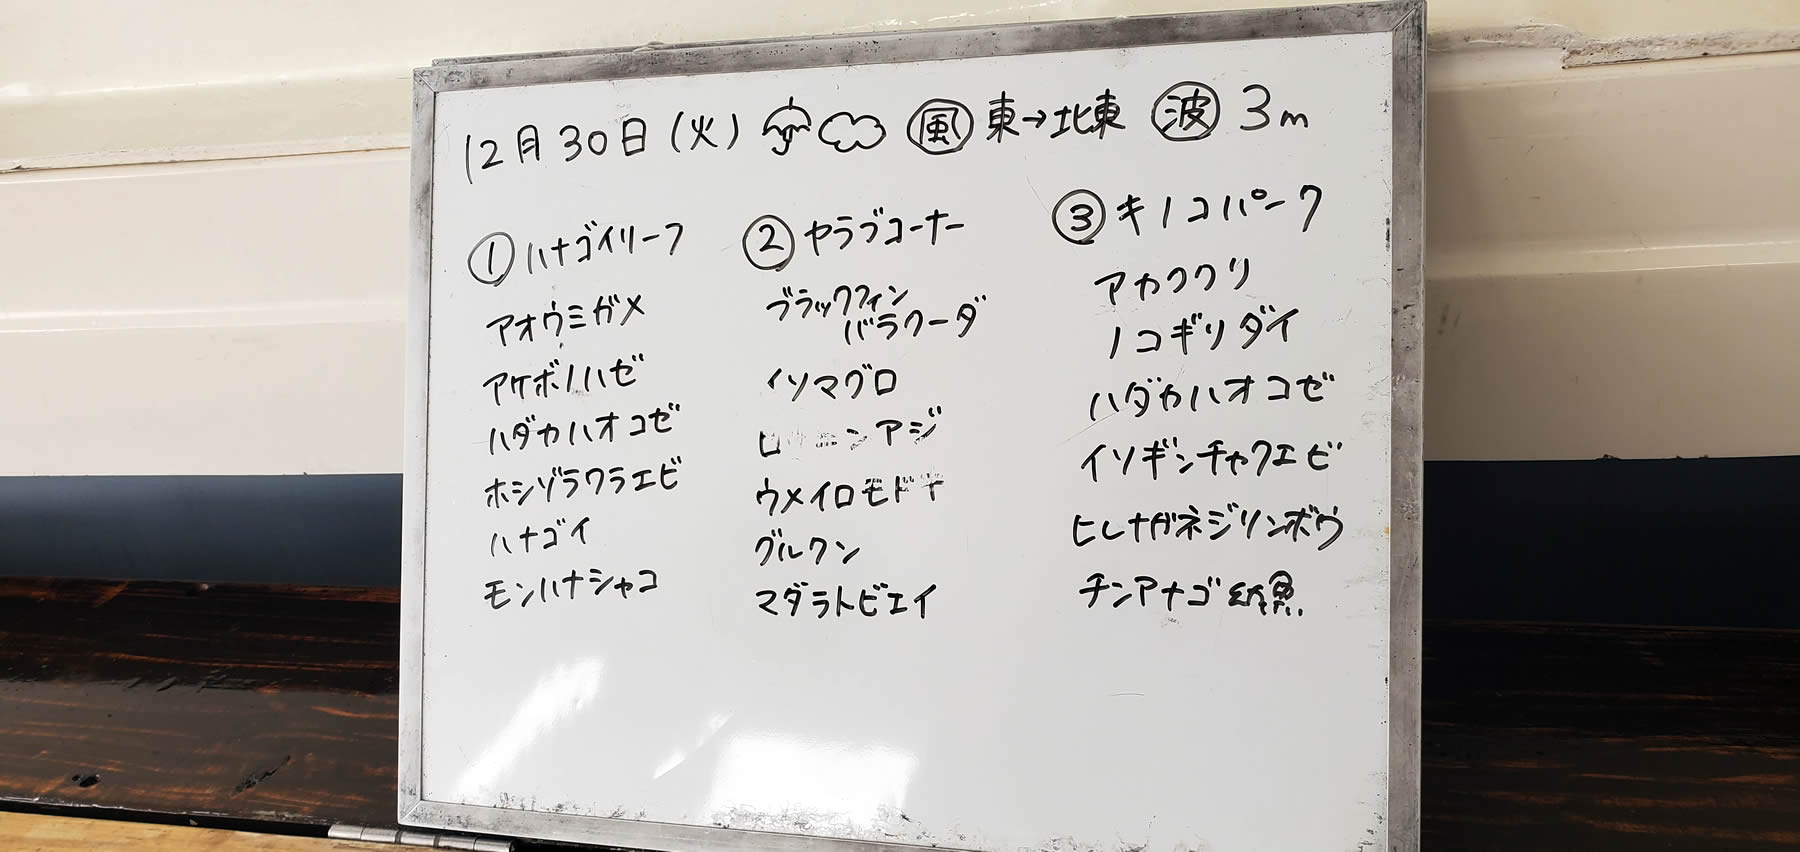 12月30日(火) 風 東→北東 波 3m
① ハナゴイリーフ
アオウミガメ
アケボノハゼ
ハダカハオコゼ
ホシゾラワラエビ
ハナゴイ
モンハナシャコ
② ヤラブコーナー
ブラックフィン
バラクーダ
イソマグロ
ウメイロモドキ
グルクン
マダラトビエイ
③ キノコパーク
アカククリ
ノコギリダイ
ハダカハオコゼ
イソギンチャクエビ
ヒレナガネジリンボウ
チンアナゴ 幼魚